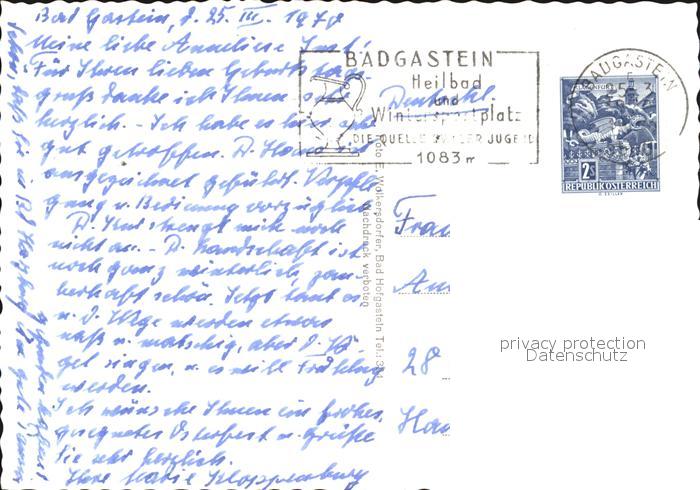 Bad Gastein, d. 25. III. 1970
Meine liebe Anneliese
Für Ihren lieben Geburtstags-
gruß danke ich Ihnen
herzlich. Ich habe es hier
gut getroffen. D. Haus ist
ausgezeichnet geführt. Verpfle-
gung u. Bedienung vorzüglich
D. Kur strengt mich noch
nicht an. - D. Landschaft ist
noch ganz winterlich, zau-
berhaft schön. Jetzt taut es
u. d. Wege werden etwas
naß u. matschig, aber d. Vö-
gel singen, u. es will Frühling
werden.
Ich wünsche Ihnen ein frohes,
gesegnetes Osterfest u. grüße
Sie sehr herzlich.
Ihre Marie Kloppenburg
BADGASTEIN
Heilbad
und
Wintersportplatz
DIE QUELLE IHRER JUGEND
1083 m
BADGASTEIN
2S
REPUBLIK ÖSTERREICH
Wolkersdorfer, Bad Hofgastein Tel.:
Nachdruck verboten
Frau
28
privacy protection
Datenschutz